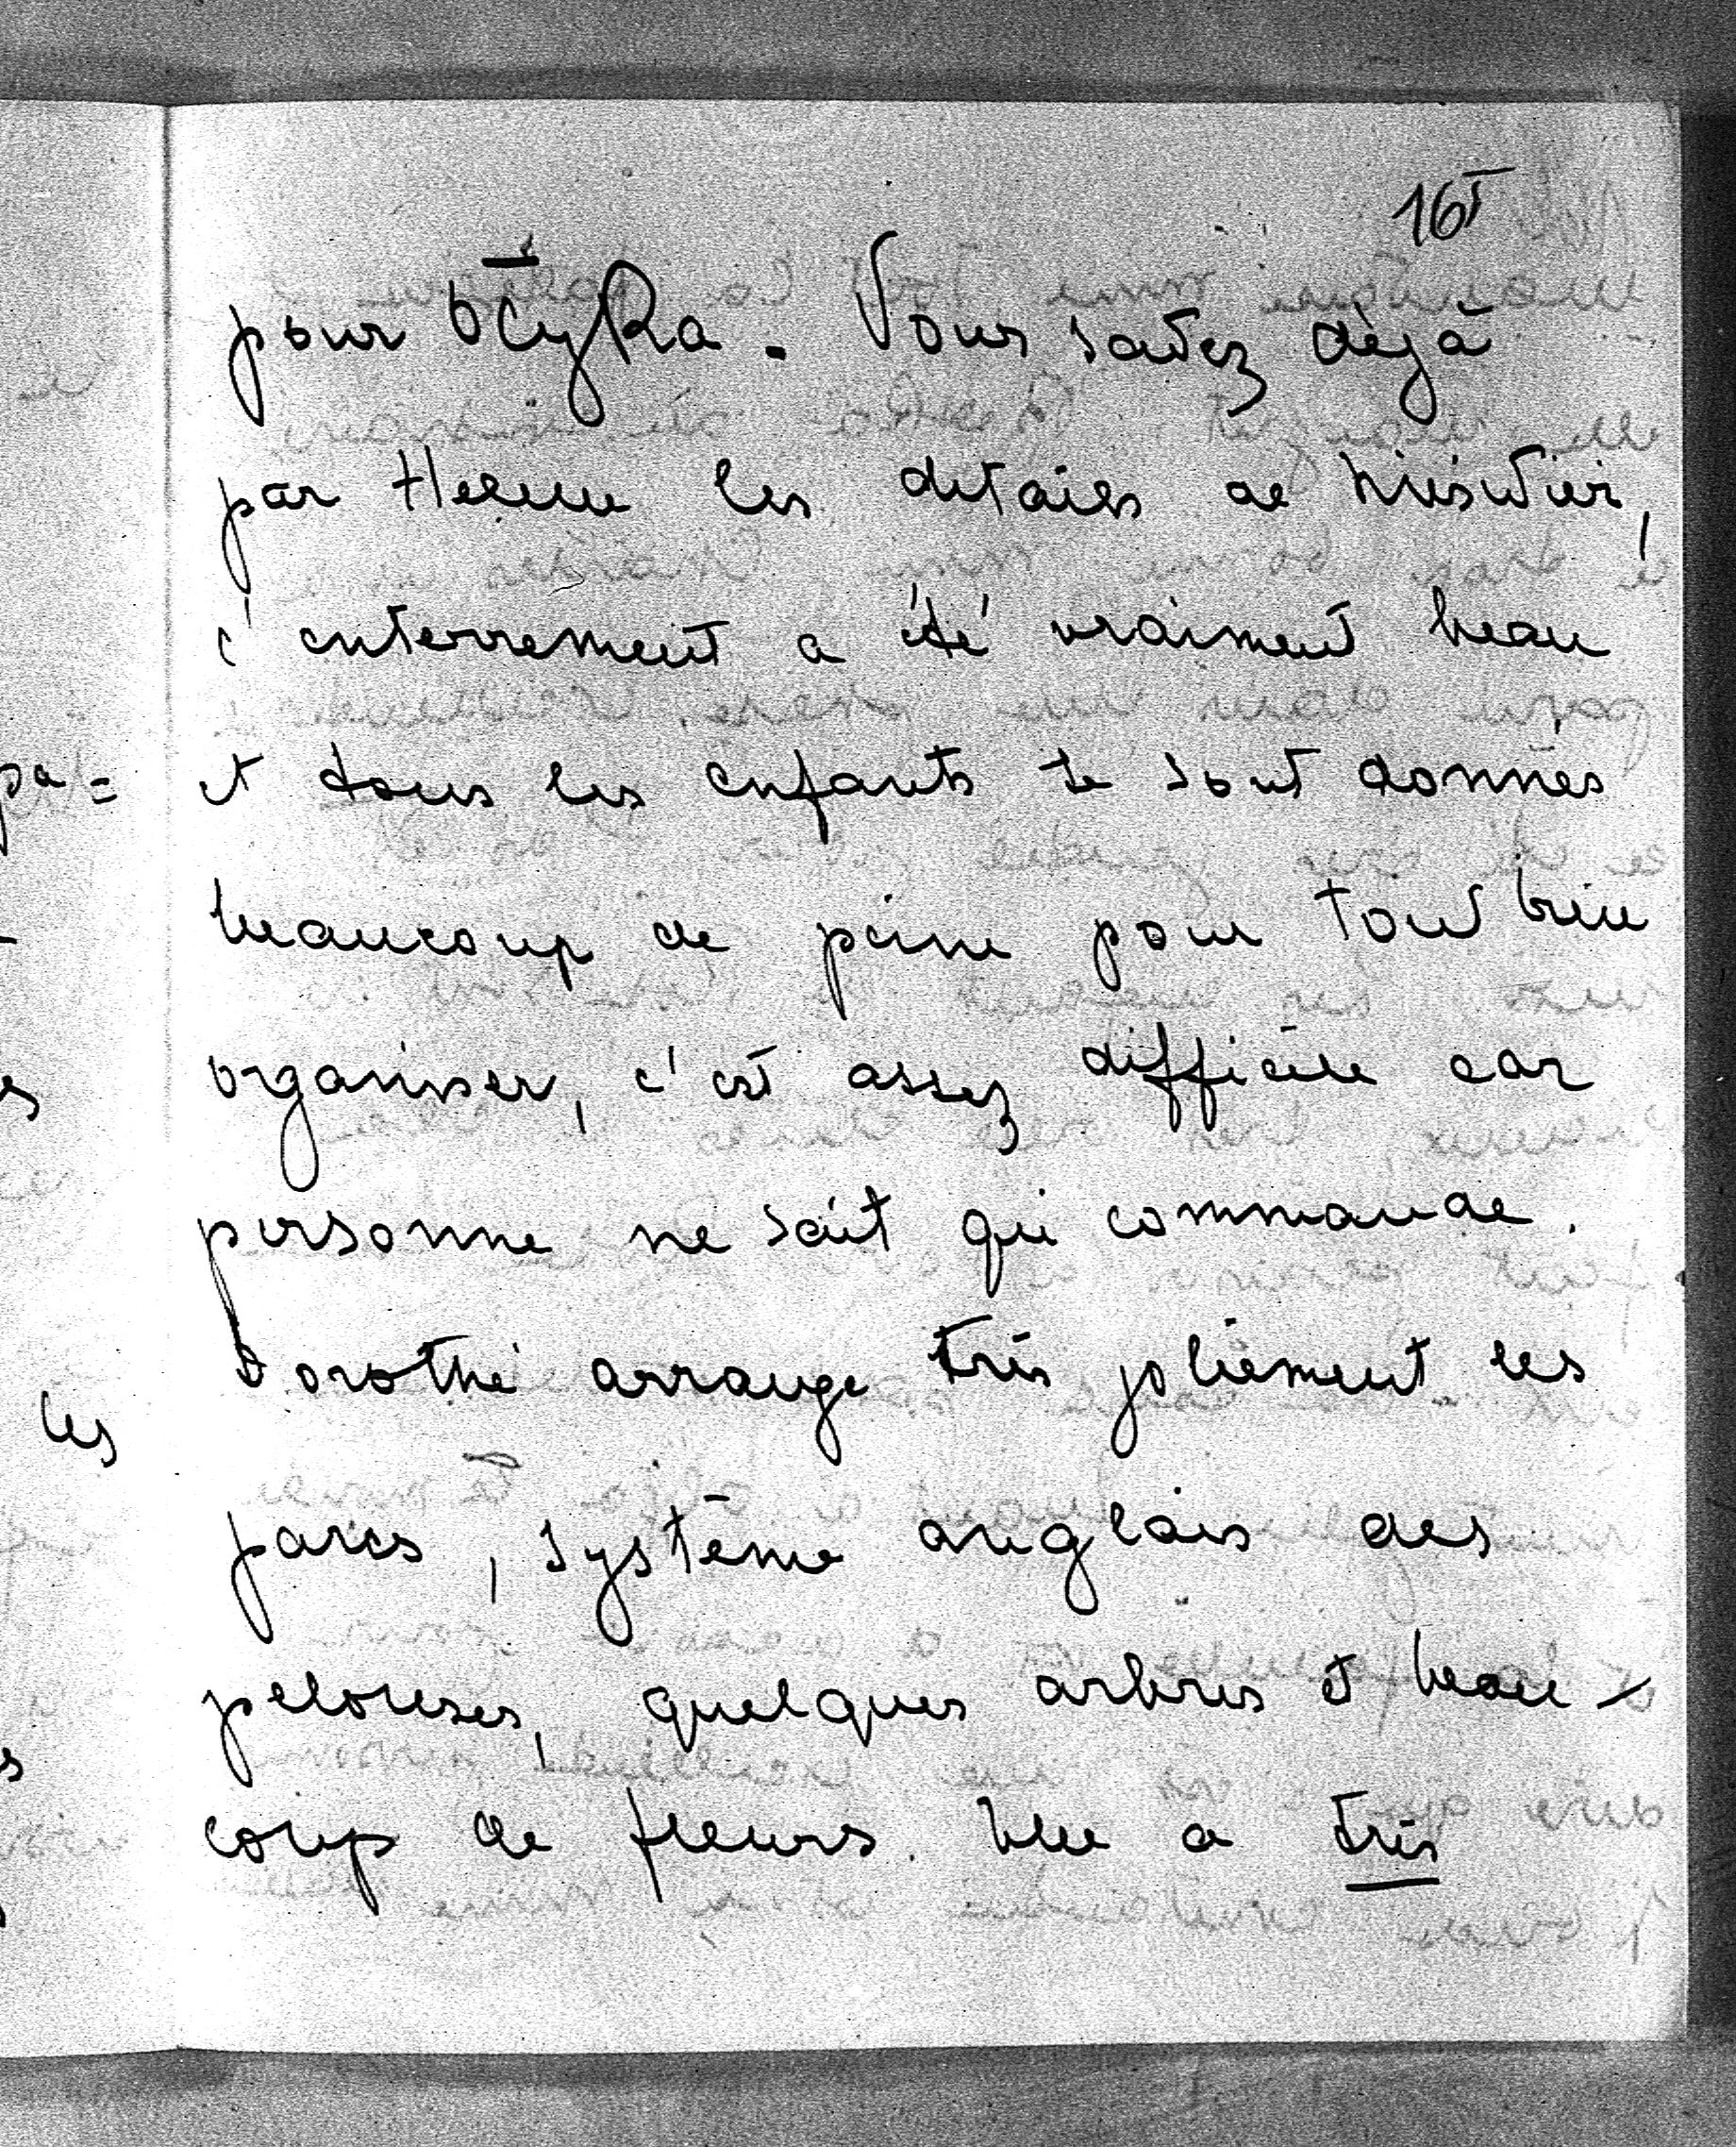 161
pour Ołyka. Vous savez déjà
par Helene les details de Nieswiez,
l'enterrement a été vraiment beau
et tous les enfants se sont donnés
beaucoup de peine pour tout bien
organiser, c'est assez difficile car
personne ne sait qui commande.
Dorothé arrange très joliement les
parcs, système anglais des
pelouses, quelques arbres et beau-
coup de fleurs. Elle a très